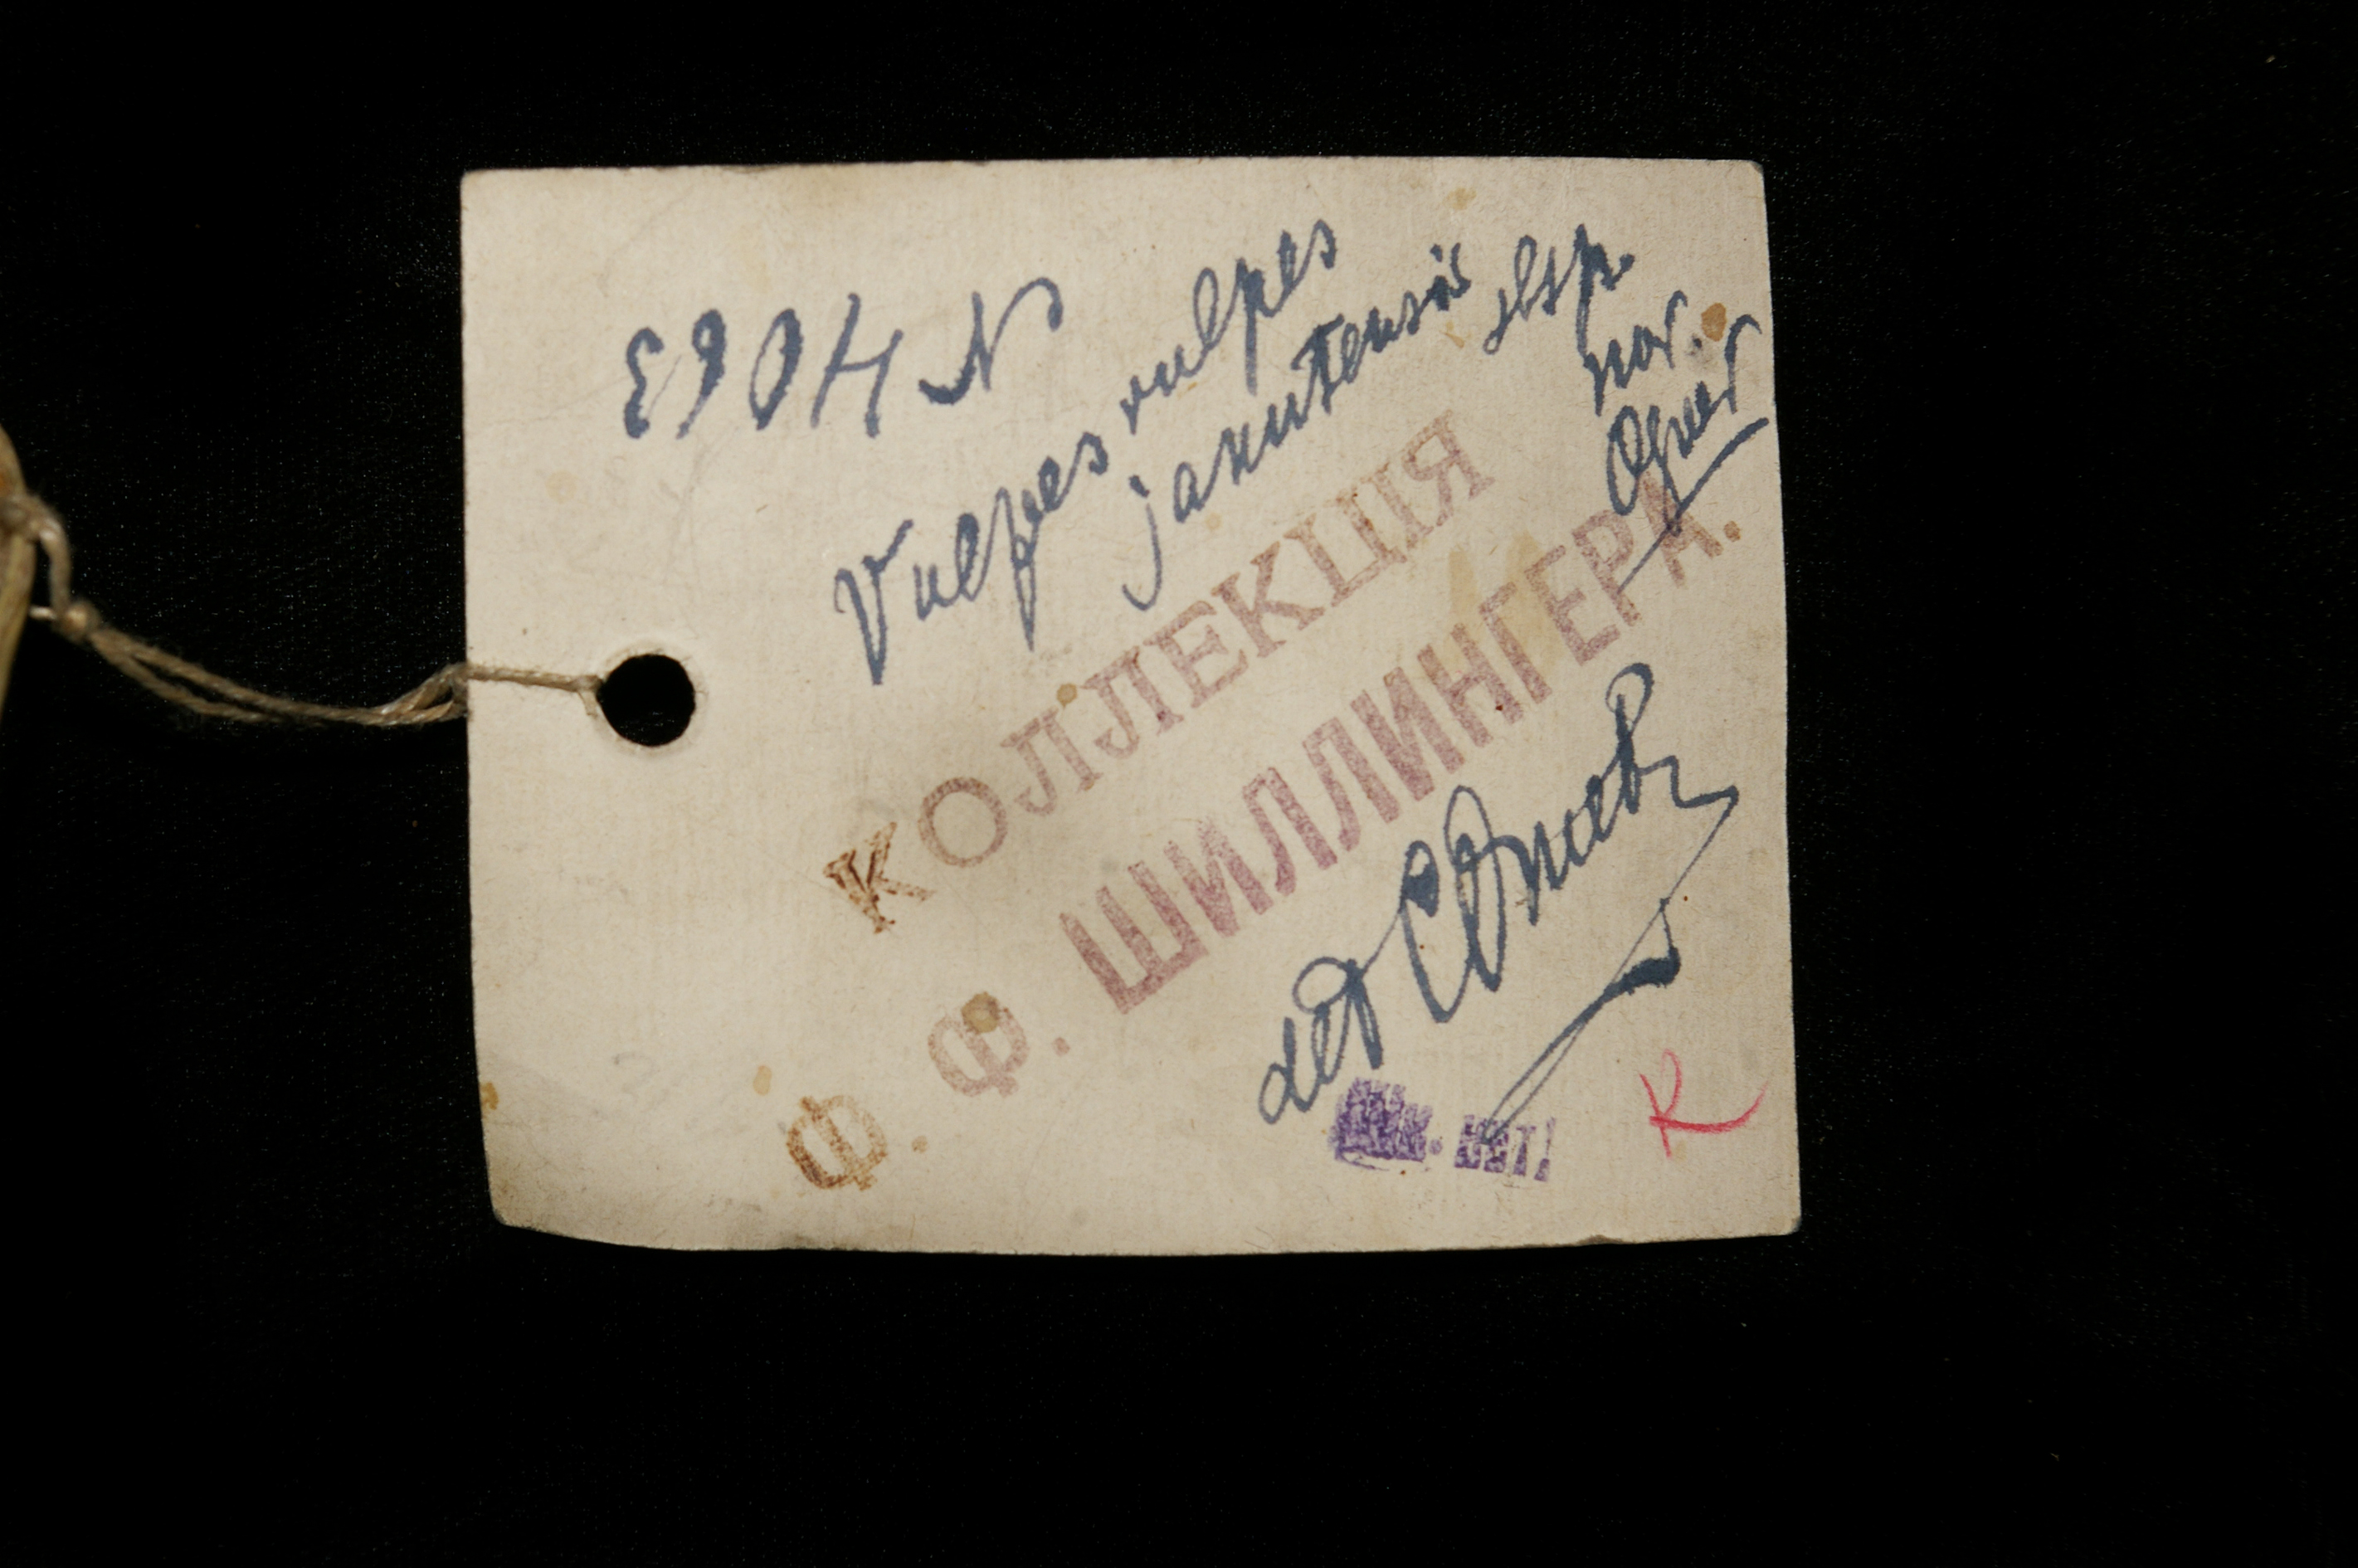 N 4063
Vulpes vulpes
jakutensis sbsp.
nov.
Ognev
КОЛЛЕКЦІЯ
Ф. Ф. ШИЛЛИНГЕРА.
det С Огнев
К